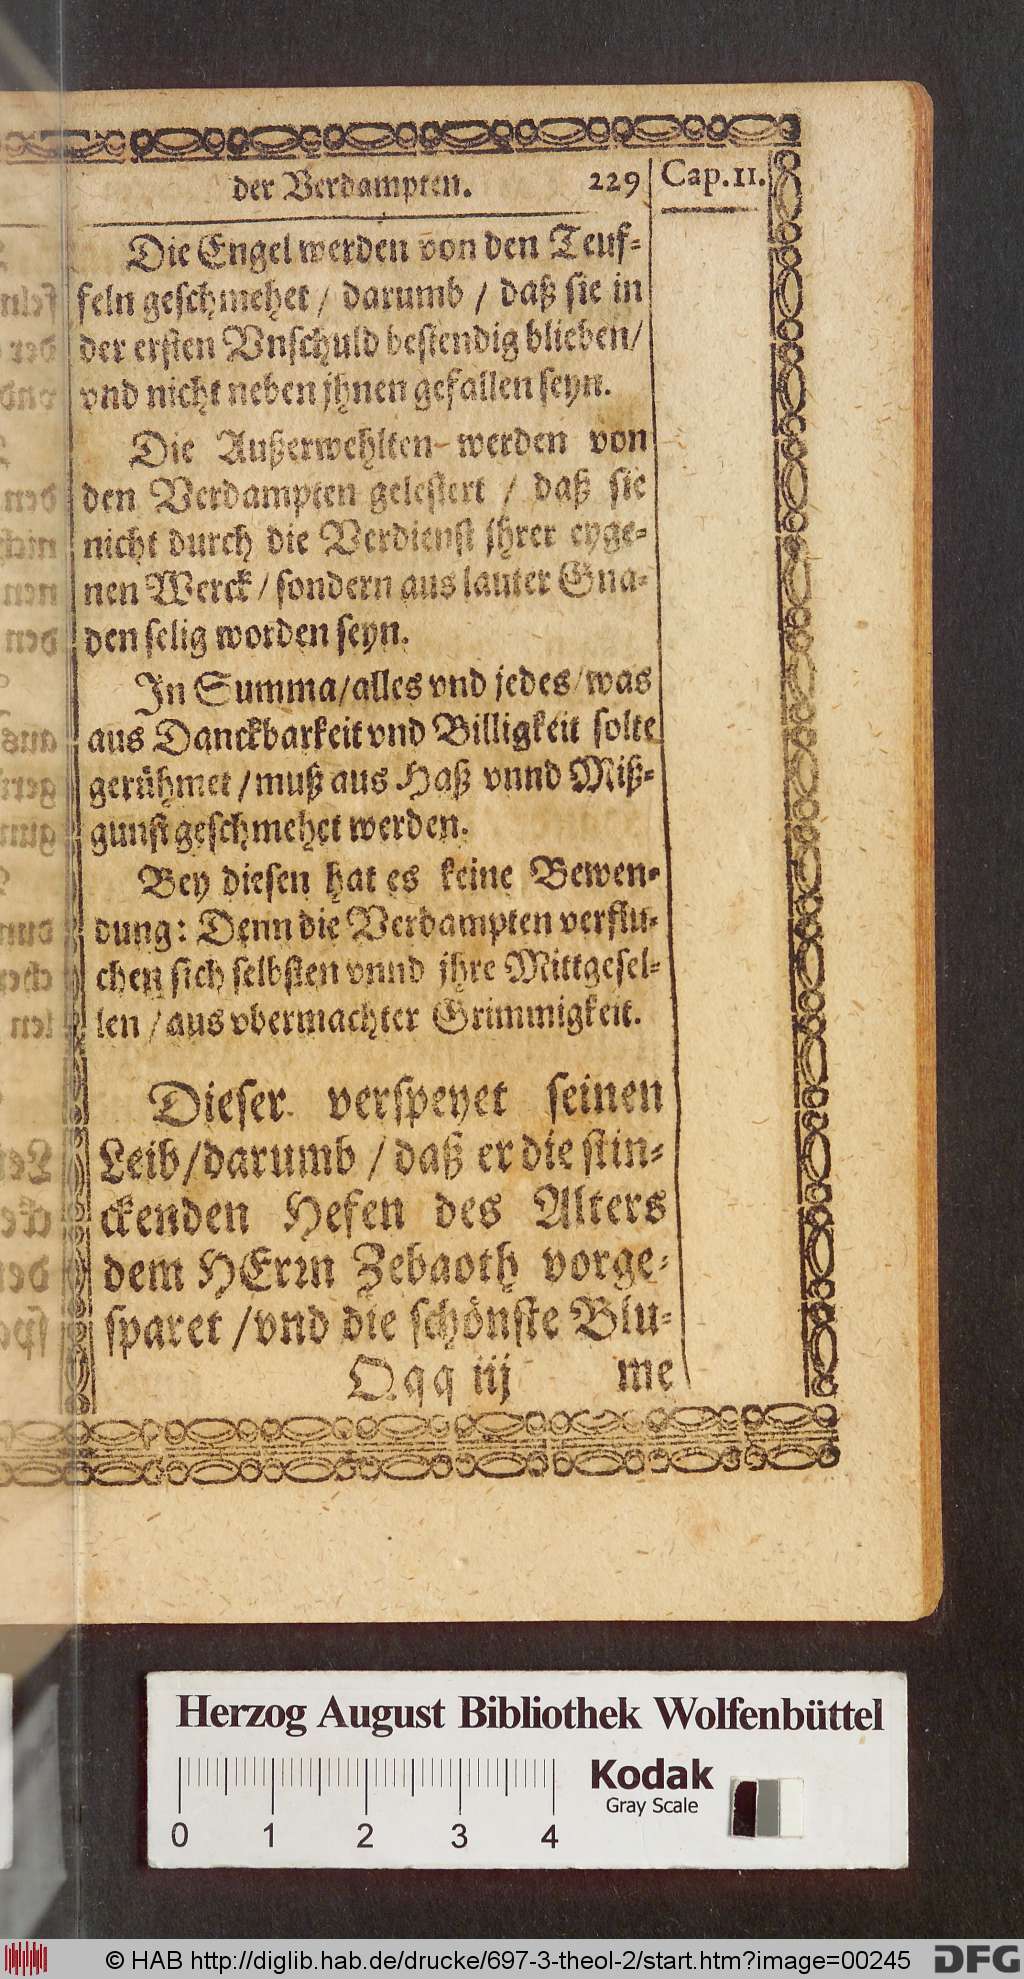 der Verdampten. 229 Cap. 11.
Die Engel werden von den Teuf-
feln geschmehet / darumb / daß sie in
der ersten Vnschuld bestendig blieben/
vnd nicht neben jhnen gefallen seyn.
Die Außerwehlten werden von
den Verdampten gelestert / daß sie
nicht durch die Verdienst jhrer eyge-
nen Werck / sondern aus lauter Gna-
den selig worden seyn.
In Summa/alles vnd jedes/was
aus Danckbarkeit vnd Billigkeit solte
gerühmet / muß aus Haß vnnd Miß-
gunst geschmehet werden.
Bey diesen hat es keine Bewen-
dung: Denn die Verdampten verflu-
chen sich selbsten vnnd jhre Mittgesel-
len / aus vbermachter Grimmigkeit.
Dieser verspeyet seinen
Leib/darumb / daß er die stin-
ckenden Hefen des Alters
dem HErrn Zebaoth vorge-
sparet / vnd die schönste Blu-
Qqq iij me
Herzog August Bibliothek Wolfenbüttel
Kodak
Gray Scale
0 1 2 3 4
© HAB http://diglib.hab.de/drucke/697-3-theol-2/start.htm?image=00245 DFG